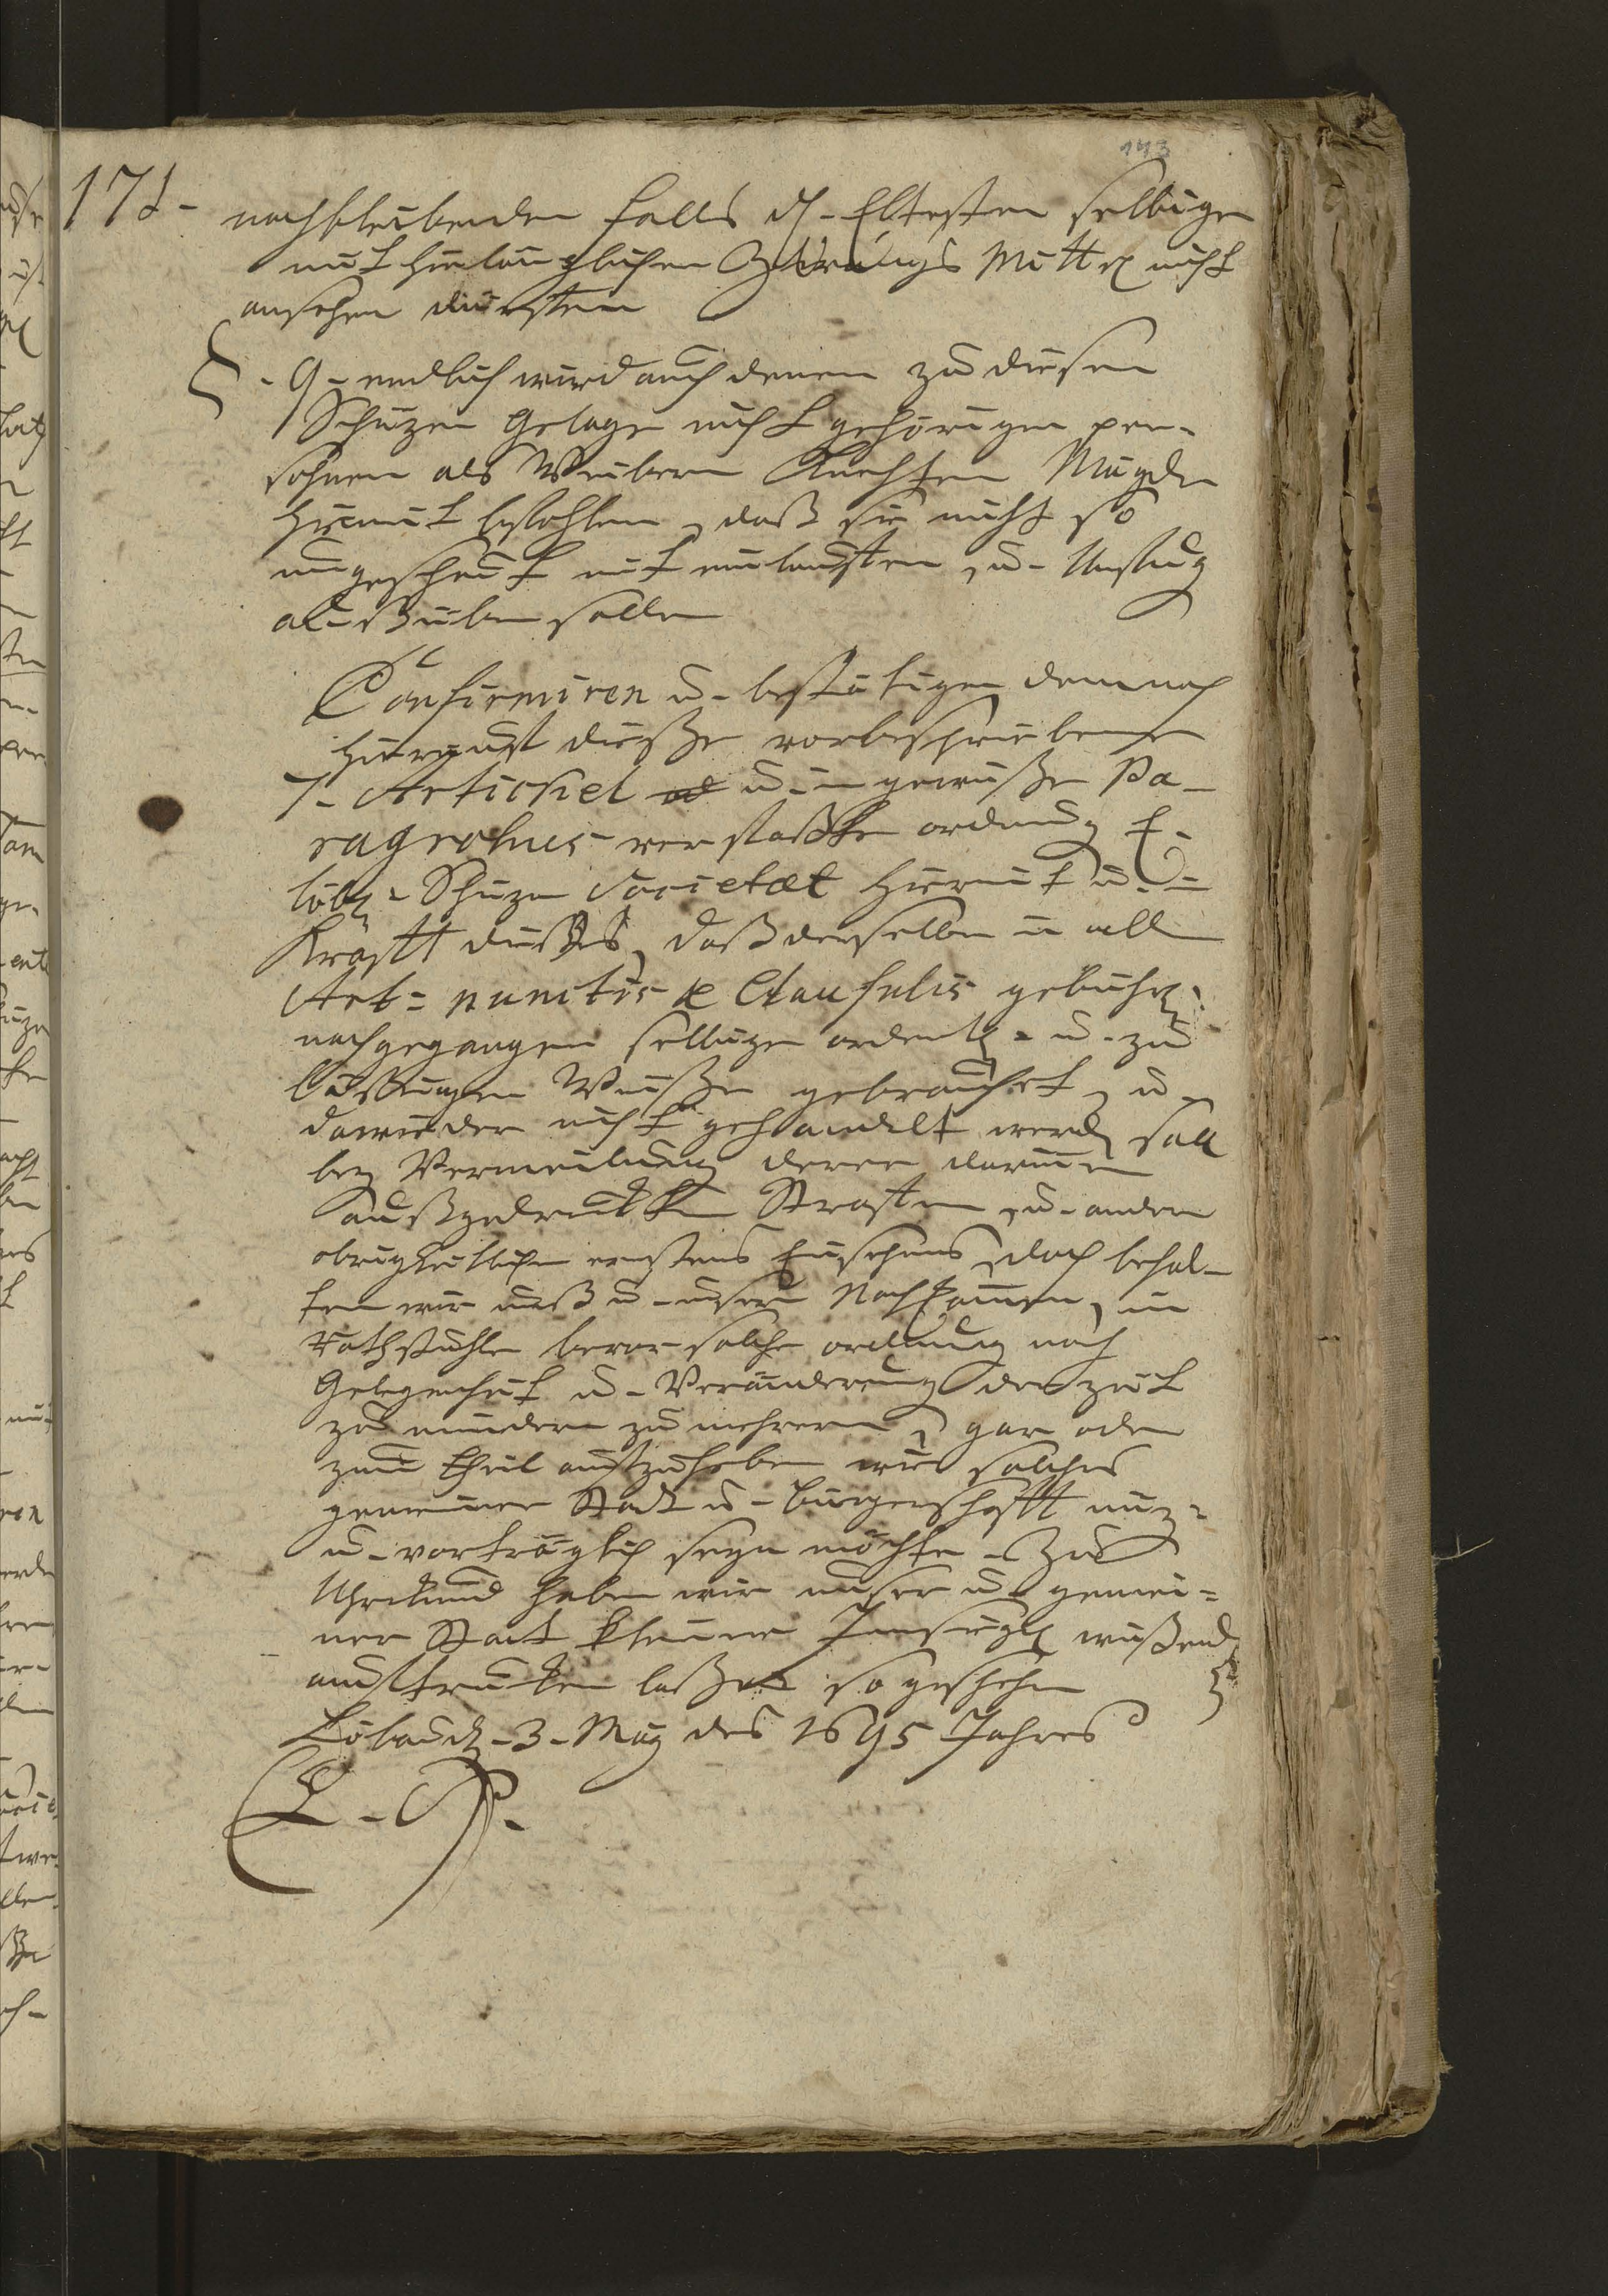 143
171-
nachbleibenden falls d. Eltesten selbigen
mit hinlänglichen Zwangs Mittel nicht
ansehen dürfften
§ - 9 - endlich wird auch denen zu diesen
Schüzen Gelage nicht gehörigen per-
sohnen als Weibern Knechten Mägde
hiemit befohlen, daß sie nicht so
ungescheut mit einlauffen, u- Unfug
aussüben sollen
Confirmiren u- bestätigen demnach
hierauf dieße vorbeschriebene
7- Artickel u- in gewisse Pa-
ragrohus- verfaßte ordnung E-
löbl- Schüzen Societæt hiermit u-
Krafft dießes, daß derselben in allen
Art- punctis & Clausulis gebührl:
nachgegangen selbige ordentl- u- zu
läßigen Weiße gebrauchet, u-
dawieder nicht gehandelt werd soll
bey Vermeidung derer darinnen
außgedruckten Straffen, u- andern
obrigkeitlichen ernstens Einsehens, doch behal-
ten wir unß u- unsern Nachkommen, im
Rathstuhle bevor solche ordnung nach
Gelegenheit u- Veränderung der zeit
zu mindern zu mehren, gar oder
zum theil auffzuheben wie solches
gemeiner Stadt u- bürgerschafft nuz-
u- vorträglich seyn möchte - Zu
Uhrkund haben wir unser u- gemei-
ner Stadt kleiner Innsiegel wißend
auffdrucken laßen so geschehen
Löbau d. 3. May des 1695 Jahres
L. S.